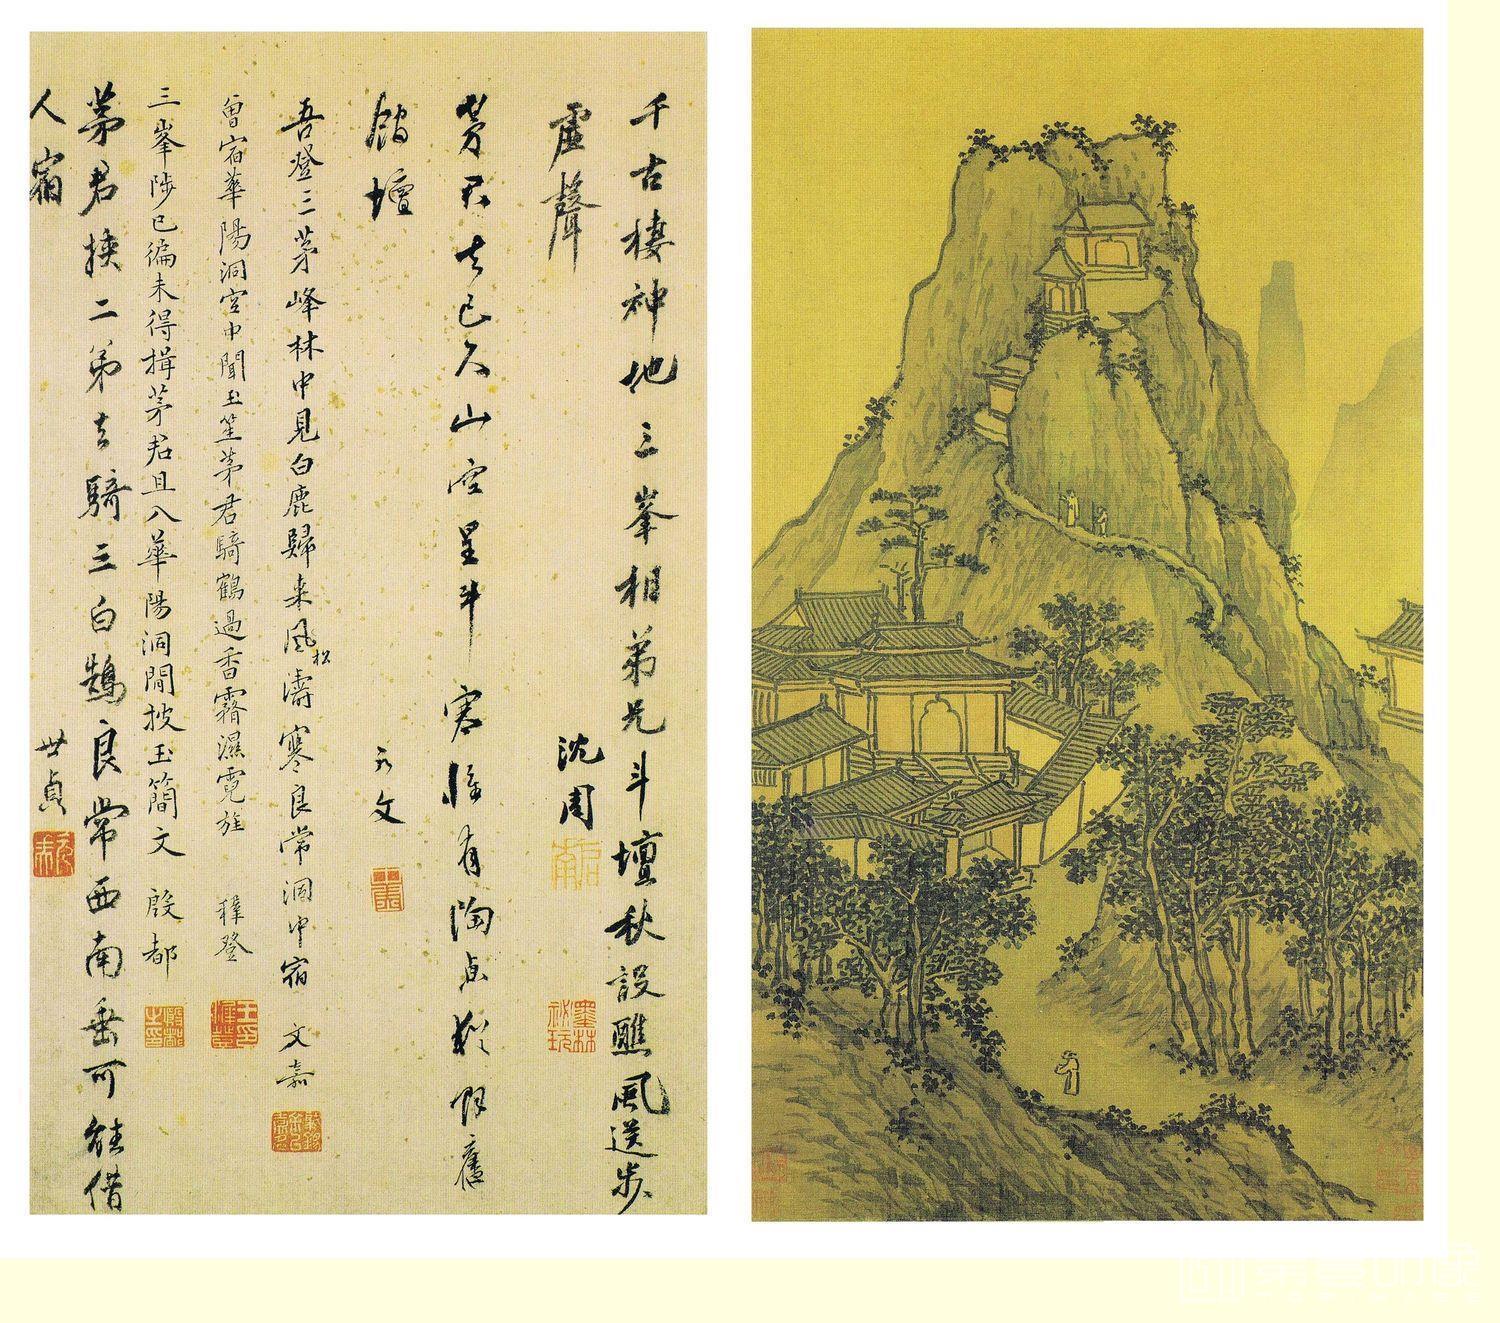 千古棲神地三峯相弟兄斗壇秋設醮風送步
虛聲
沈周
茅君去已久山空星斗寒惟有陶貞
館壇
文
吾登三茅峰林中見白鹿歸来風濤寒良常洞中宿
松
文嘉
曾宿華陽洞宮中聞玉笙茅君騎鶴過香霧濕霓旌
穉登
三峯陟已徧未得揖茅君且入華陽洞閒披玉簡文
殷都
茅君挾二弟去騎三白鵠良常西南垂可能借
人宿
世貞